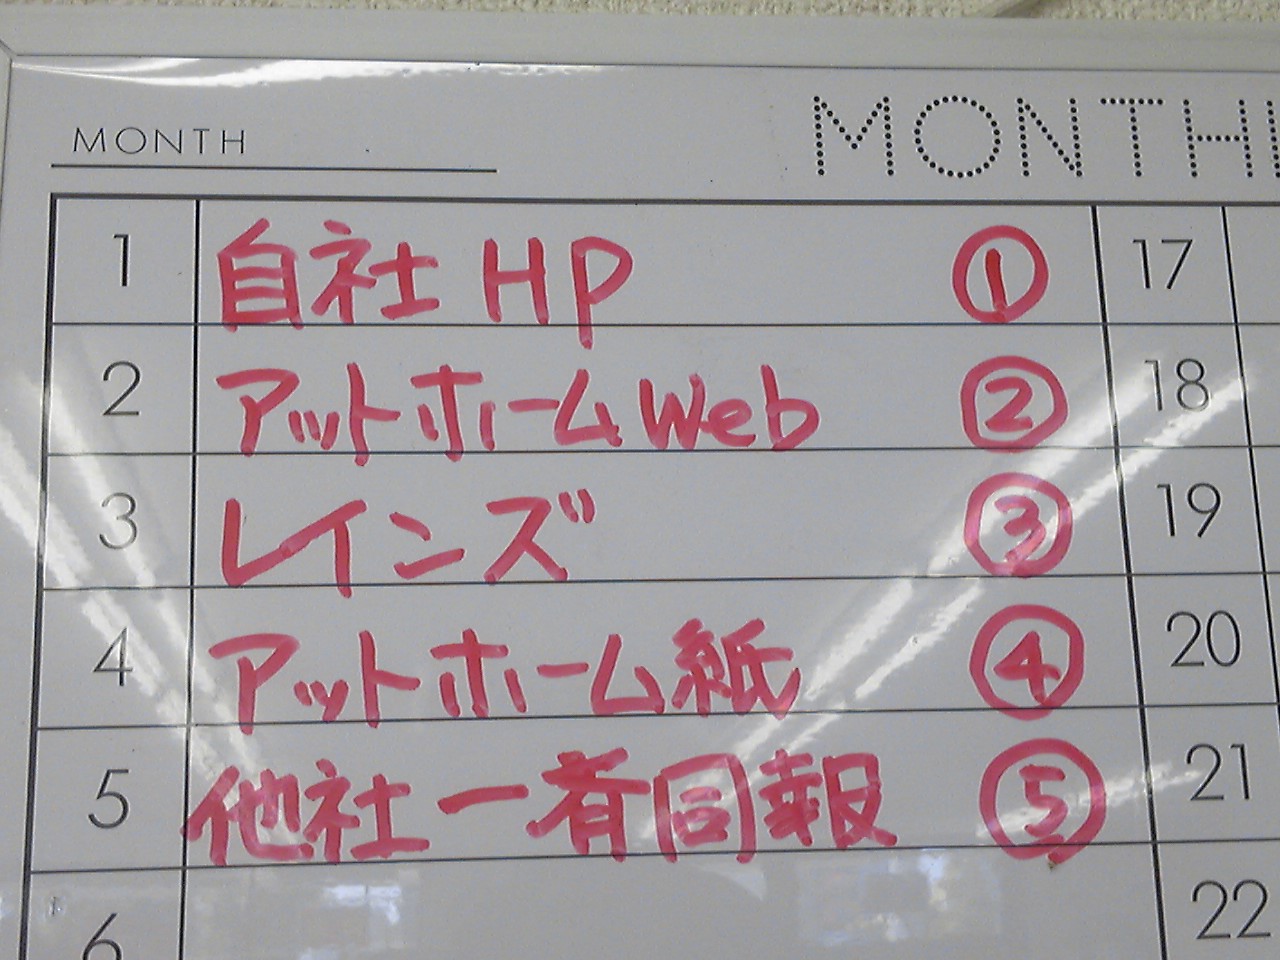 MONTH
MONTH
1 自社HP ① 17
2 アットホームWeb ② 18
3 レインズ ③ 19
4 アットホーム紙 ④ 20
5 他社一斉同報 ⑤ 21
6 22